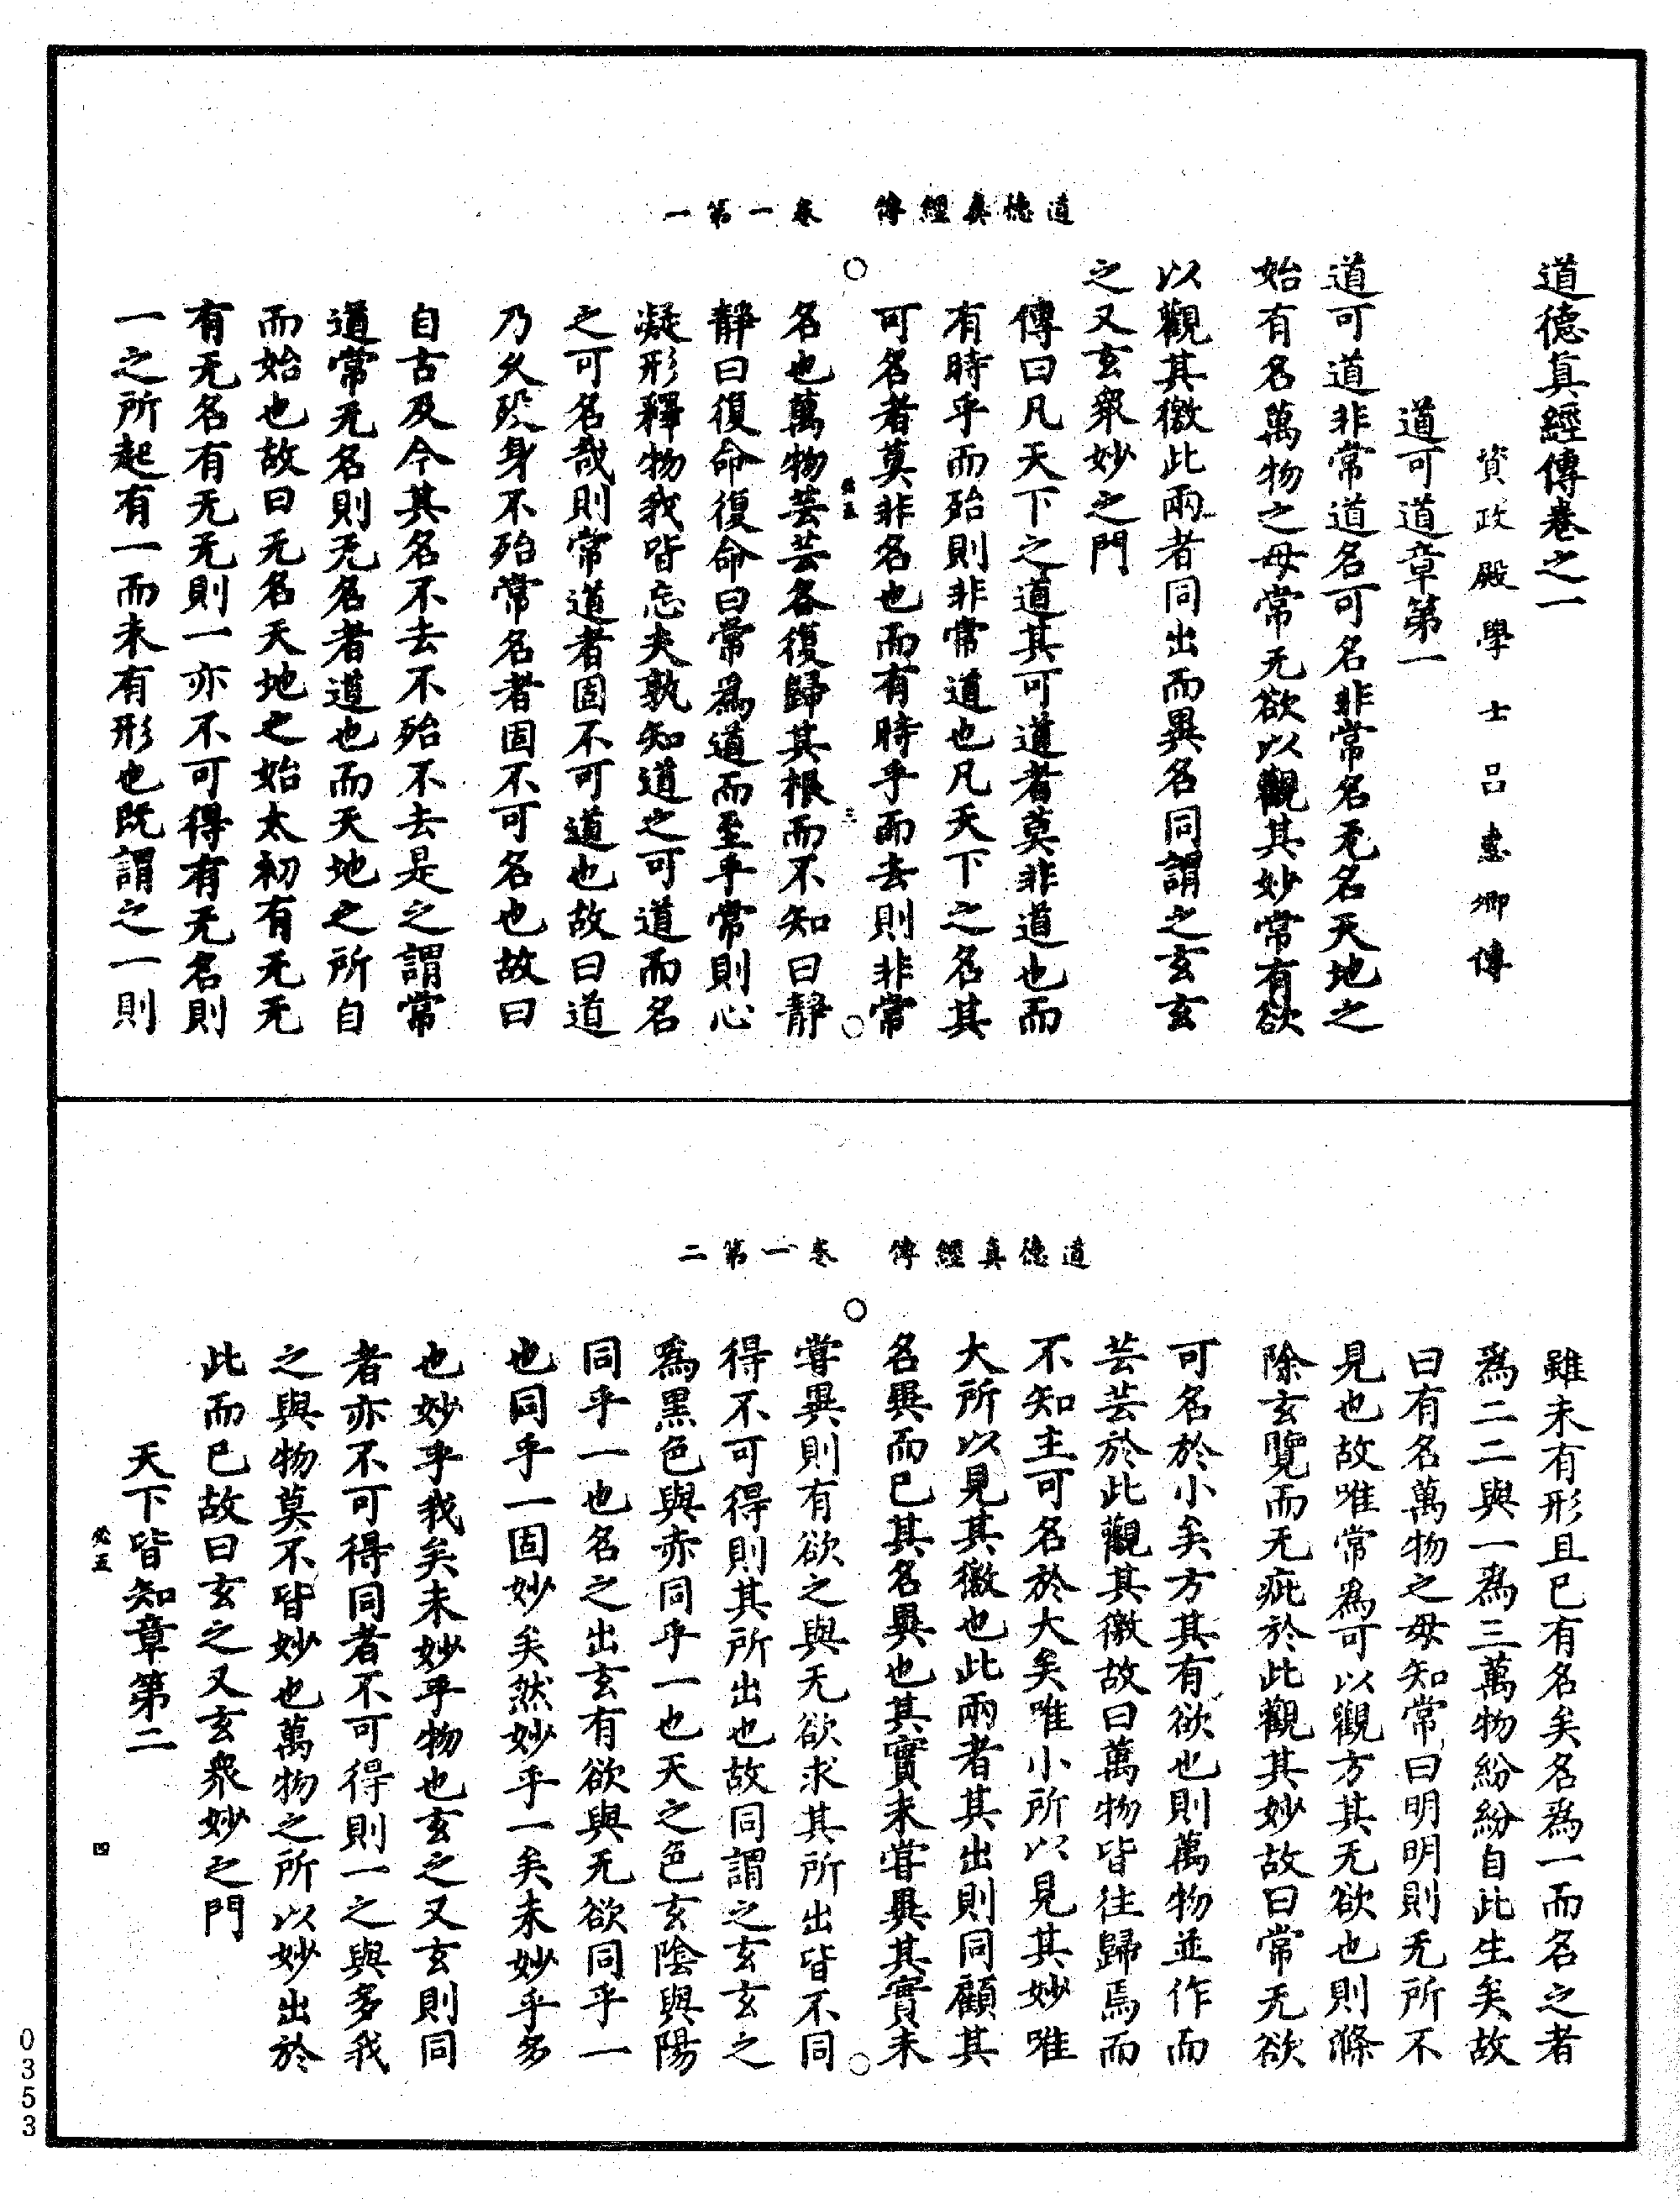 道德真經傳卷之一
資政殿學士呂惠卿傳
道可道章第一
道可道非常道名可名非常名无名天地之
始有名萬物之母常无欲以觀其妙常有欲
以觀其徼此兩者同出而異名同謂之玄玄
之又玄衆妙之門
傳曰凡天下之道其可道者莫非道也而
有時乎而殆則非常道也凡天下之名其
可名者莫非名也而有時乎而去則非常
道德真經傳 卷一第一
三
名也萬物芸芸各復歸其根而不知曰靜
靜曰復命復命曰常爲道而至乎常則心
凝形釋物我皆忘夫孰知道之可道而名
之可名哉則常道者固不可道也故曰道
乃久殁身不殆常名者固不可名也故曰
自古及今其名不去不殆不去是之謂常
道常无名則无名者道也而天地之所自
而始也故曰无名天地之始太初有无无
有无名有无无則一亦不可得有无名則
一之所起有一而未有形也既謂之一則
雖未有形且已有名矣名爲一而名之者
爲二二與一爲三萬物紛紛自此生矣故
曰有名萬物之母知常曰明明則无所不
見也故唯常爲可以觀方其无欲也則滌
除玄覽而无疵於此觀其妙故曰常无欲
可名於小矣方其有欲也則萬物並作而
芸芸於此觀其徼故曰萬物皆往歸焉而
不知主可名於大矣唯小所以見其妙唯
大所以見其徼也此兩者其出則同顧其
名異而已其名異也其實未甞異其實未
道德真經傳 卷一第二
甞異則有欲之與无欲求其所出皆不同
得不可得則其所出也故同謂之玄玄之
爲黑色與赤同乎一也天之色玄陰與陽
同乎一也名之出玄有欲與无欲同乎一
也同乎一固妙矣然妙乎一矣未妙乎多
也妙乎我矣未妙乎物也玄之又玄則同
者亦不可得同者不可得則一之與多我
之與物莫不皆妙也萬物之所以妙出於
此而已故曰玄之又玄衆妙之門
天下皆知章第二
四
0353